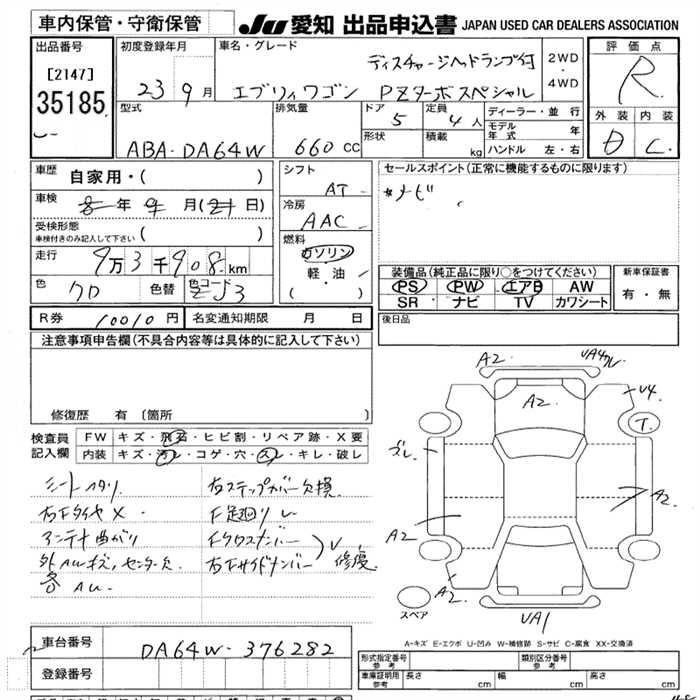 車内保管・守衛保管
JU 愛知 出品申込書 JAPAN USED CAR DEALERS ASSOCIATION
出品番号
[2147]
35185
初度登録年月
23 9月
車名・グレード
ディスチャージヘッドランプ付
エブリィワゴン PZターボスペシャル
2WD
・
4WD
評価点
R
外装 内装
D C
型式
ABA-DA64W
排気量
660 CC
ドア
5
形状
定員
4人
積載
kg
ディーラー・並行
モデル年式 年
ハンドル 左・右
車歴
自家用・( )
車検
年 月( 日)
受検形態
車検付きのみ記入して下さい ( )
走行
9万3千908km
色
クロ
色替
色コード
ZJ3
シフト
AT
冷房
AAC
燃料
ガソリン
軽・油
( )
セールスポイント(正常に機能するものに限ります)
*ナビ
装備品(純正品に限り○をつけてください)
PS PW エアB AW
SR ナビ TV カワシート
新車保証書
有・無
R券 10010円
名変通知期限 月 日
後日品
注意事項申告欄(不具合内容等は具体的に記入して下さい)
修復歴 有 〔箇所 〕
検査員
記入欄
FW キズ・飛石・ヒビ割・リペア跡・X要
内装 キズ・汚レ・コゲ・穴・スレ・キレ・破レ
シートハタリ
右Fタイヤ X
アンテナ曲がり
外AUキズ,センター欠
各AU
右ステップカバー欠損
F足廻りU
Fクロスメンバー
右Fサイドメンバー
V
修復
A2
UA4ワレ
A2
U4
T
ズレ
A2
A2
A2
スペア
UA1
A-キズ E-エクボ U-凹み W-補修跡 S-サビ C-腐食 XX-交換済
車台番号
DA64W-376282
登録番号
形式指定番号
参考
類別区分番号
参考
車庫証明用
参考
長さ cm
幅 cm
高さ cm